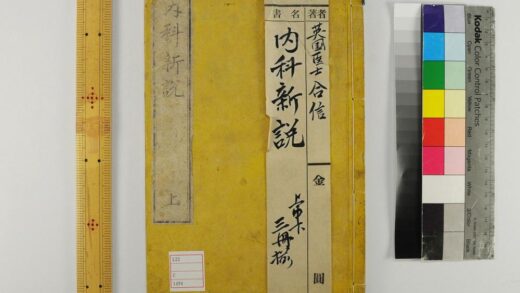 書名
内科新説
上中下
三冊揃
著者
英国医士 合信
金
圓
内科新説
上
Kodak Color Control Patches
Blue
Cyan
Green
Yellow
Red
Magenta
White
Black